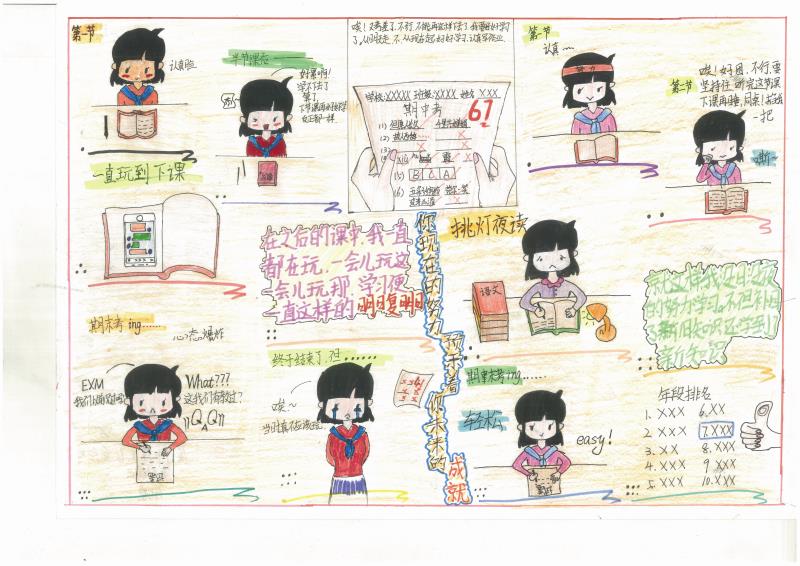 第一节
认真脸
半节课后
好累啊!
学不下去
算了,
一直玩到下课
唉!又考差了,不行,不能再这样下去了,我要好好学习
了,从明天起,不,从现在起好好学习,认真写作业.
学校:XXXXX 班级:XXXX 姓名:XXX
期中考
67
(1)
(2)
(3)
(5) B C A
(6)
在之后的课中,我一直
都在玩,一会儿玩这
一会儿玩那,学习便
一直这样的明日复明日
期末考 ing......
心态爆炸
EXM
What???
这我们有教过?
QAQ
终于结束了,但......
唉~
你现在的努力
预示着
你未来的
成就
第一节
认真...
努力
第二节
唉!好困,不行,要
坚持住,听完这节课
下课再睡,同桌!掐我
一把
嘶~
挑灯夜读
语文
就这样我没日没夜
的努力学习,不但补回
了新旧知识还学到了
新知识
期末考 ing......
轻松
easy!
年段排名
1. XXX 6. XX
2. XXX 7. XXX
3. XX 8. XXX
4. XXX 9. XXX
5. XXX 10. XXX